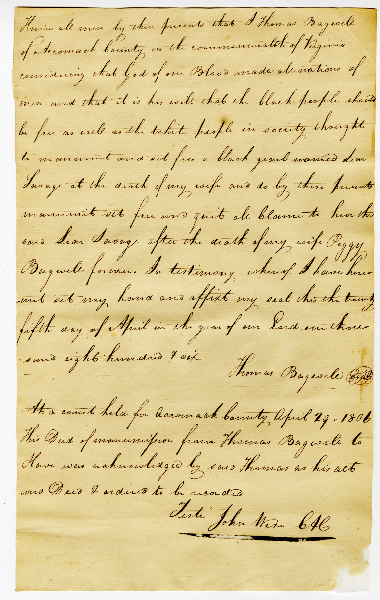 Know all men by these presents that I Thomas Bagwell
of Accomack County in the commonwealth of Virginia
considering that God of one Blood made all nations of
men and that it is his will that the black people should
be free as well as the white people in society thought
to manumit and set free a black gearl named Lear
Savage at the death of my wife and do by these presents
manumit set free and quit all blame to her the
said Lear Savage after the death of my wife Peggy
Bagwell forever In testimony whereof I have here
unto set my hand and affixt my seal this the twenty
fifth day of April in the year of our Lord one thou
sand eight hundred & six
Thomas Bagwell
At a court held for Accomack County April 29. 1806
This Deed of manumission from Thomas Bagwell to
Slave was acknowledged by said Thomas as his act
and Deed & ordered to be recorded
Teste John Wise CAC